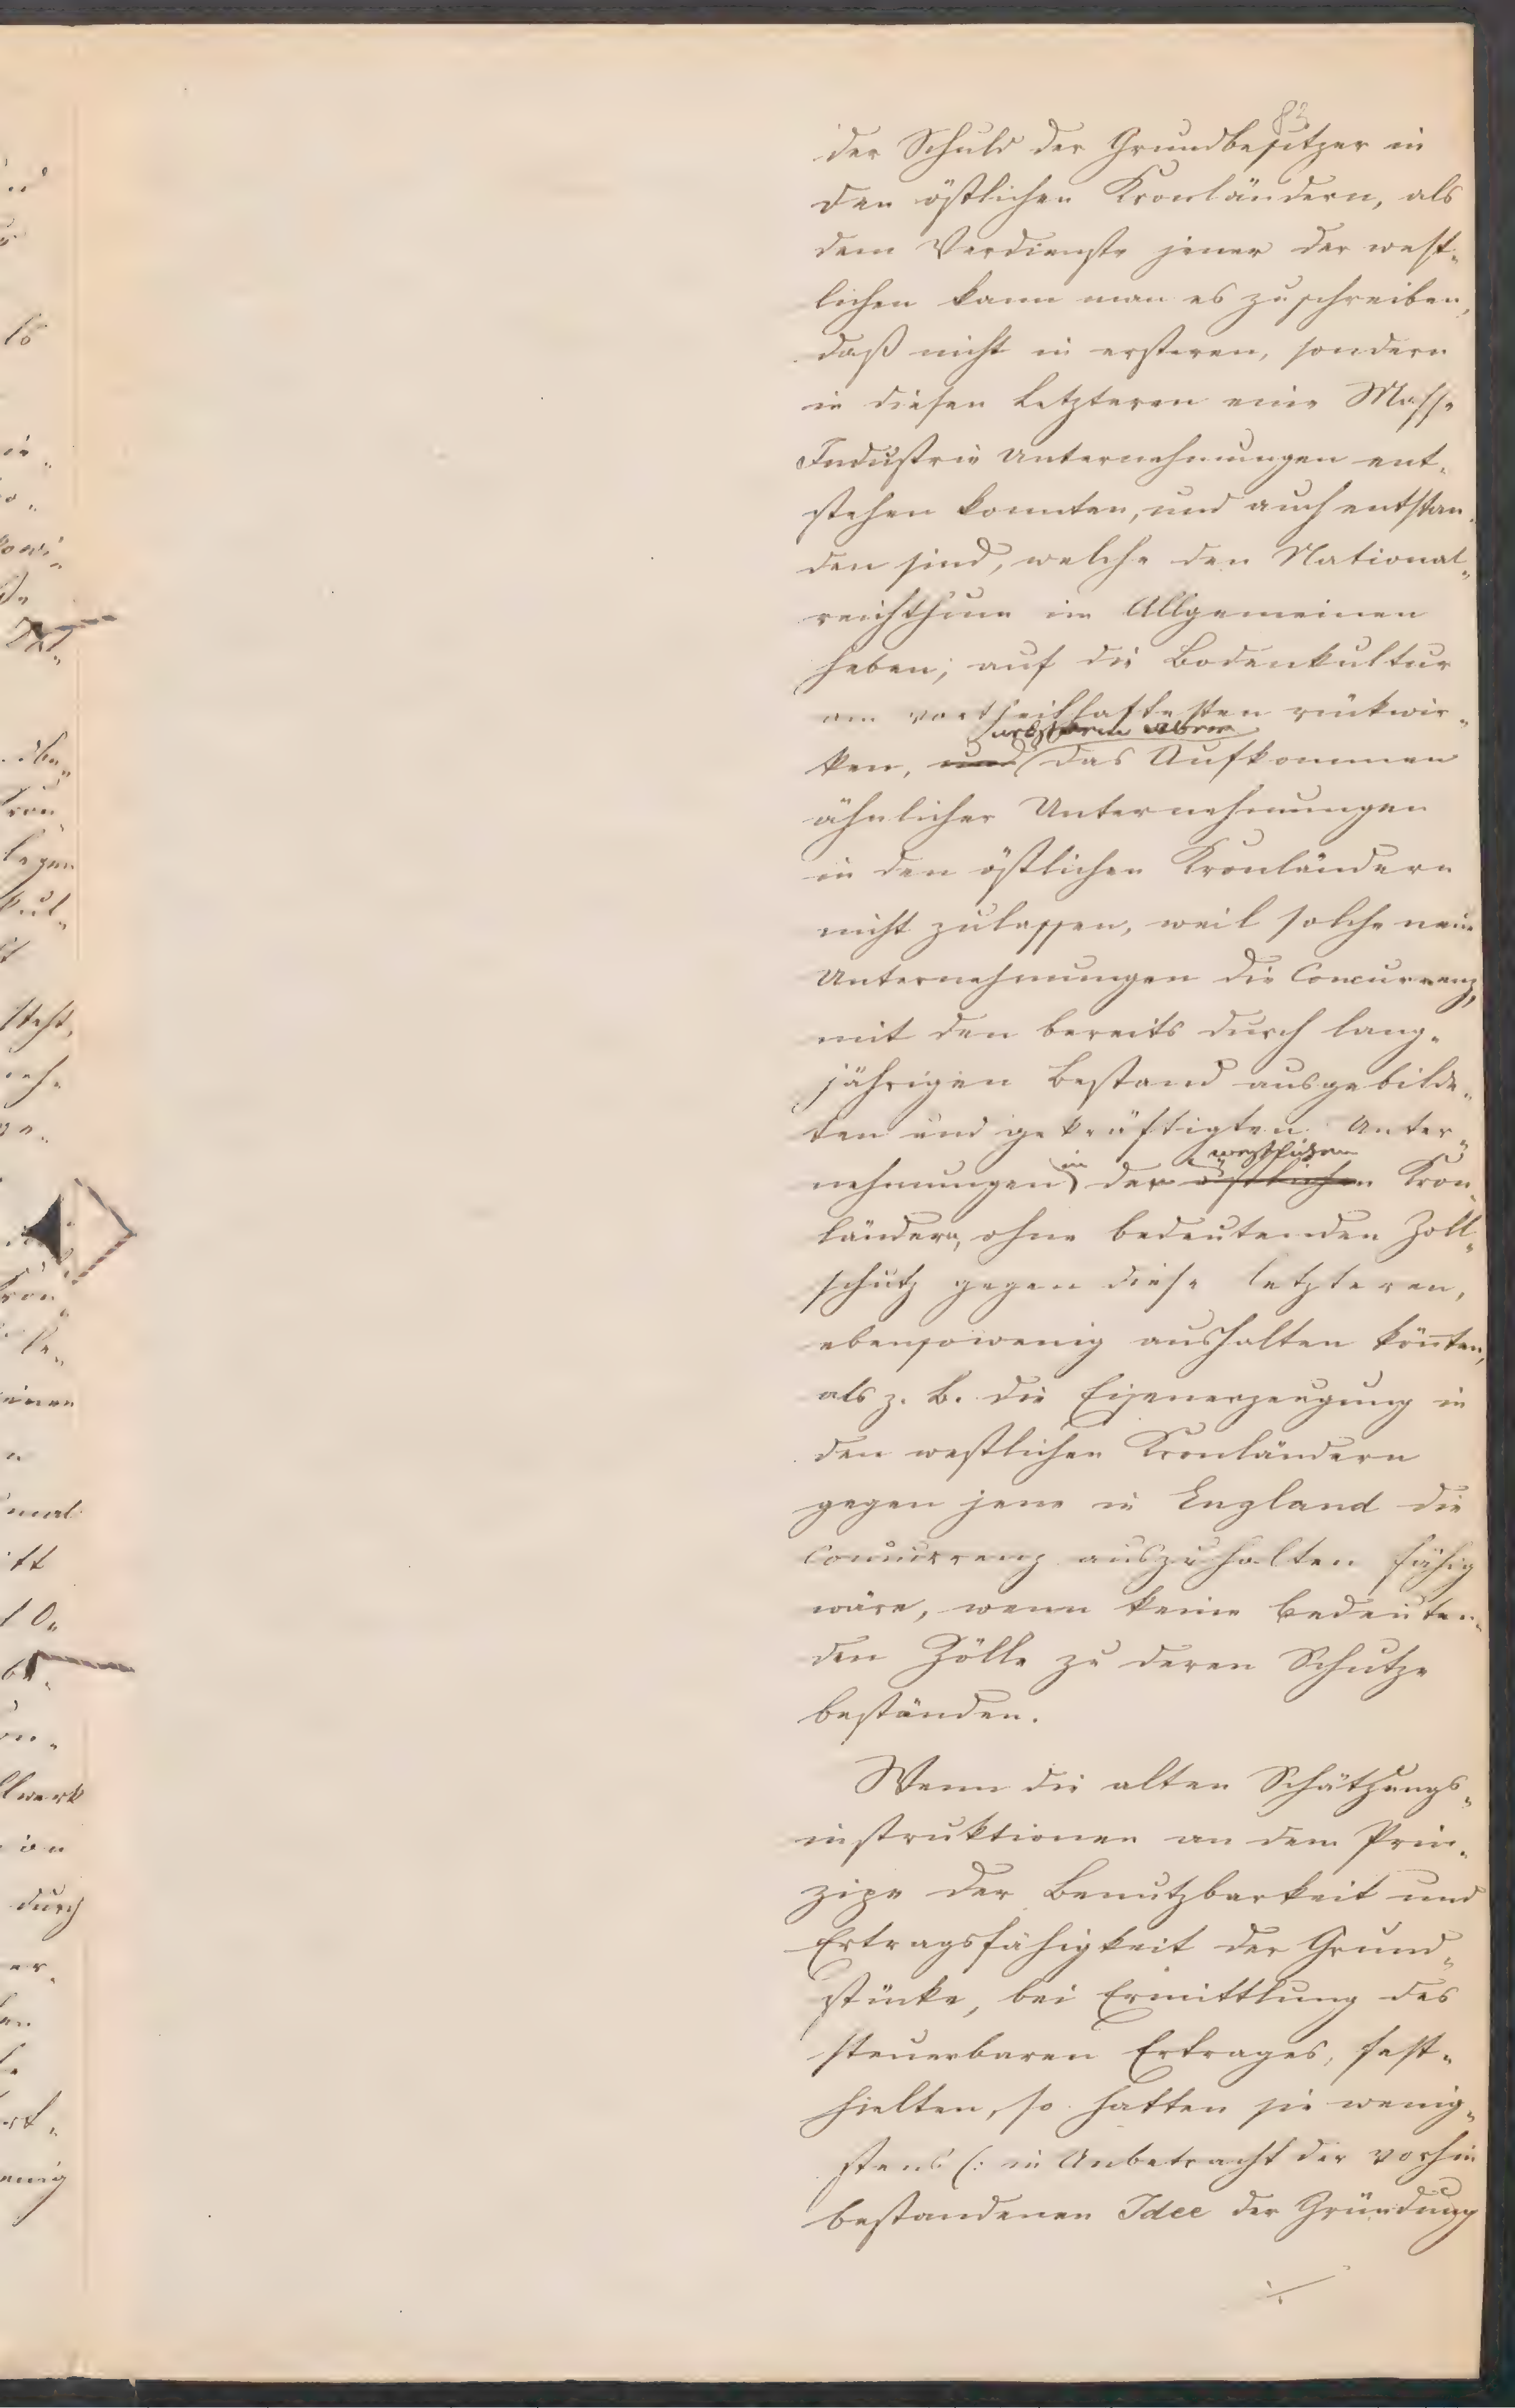 83
der Schuld der Grundbesitzer in
den östlichen Kronländern, als
dem Verdienste jener der west„
lichen kann man es zuschreiben,
daß nicht in ersteren, sondern
in diesen Letzteren eine Masse
Industrie Unternehmungen ent„
stehen konnten, und auch entstan„
den sind, welche den National„
reichthum im Allgemeinen
heben, auf die Bodenkultur
am vortheilhaftesten rückwir„
ken, und das Aufkommen
ähnlicher Unternehmungen
in den östlichen Kronländern
nicht zulassen, weil solche neue
Unternehmungen die Concurrenz,
mit den bereits durch lang„
jährigen Bestand ausgebilde„
ten und gekräftigten Unter„
in westlichen
nehmungen der östlichen Kron„
ländern, ohne bedeutenden Zoll„
schutz gegen diese letzteren,
ebensowenig aushalten kön̄ten,
als z. B. die Eisenerzeugung in
den westlichen Kronländern
gegen jene in England die
Concurrenz auszuhalten fähig
wäre, wenn keine bedeuten„
den Zölle zu deren Schutze
beständen.
Wenn die alten Schätzungs„
instruktionen an dem Prin„
zipe der Benutzbarkeit und
Ertragsfähigkeit der Grund„
stücke, bei Ermittlung des
steuerbaren Ertrages, fest„
hielten, so hatten sie wenig„
stens (: in Anbetracht der vorhin
bestandenen Idee der Gründung